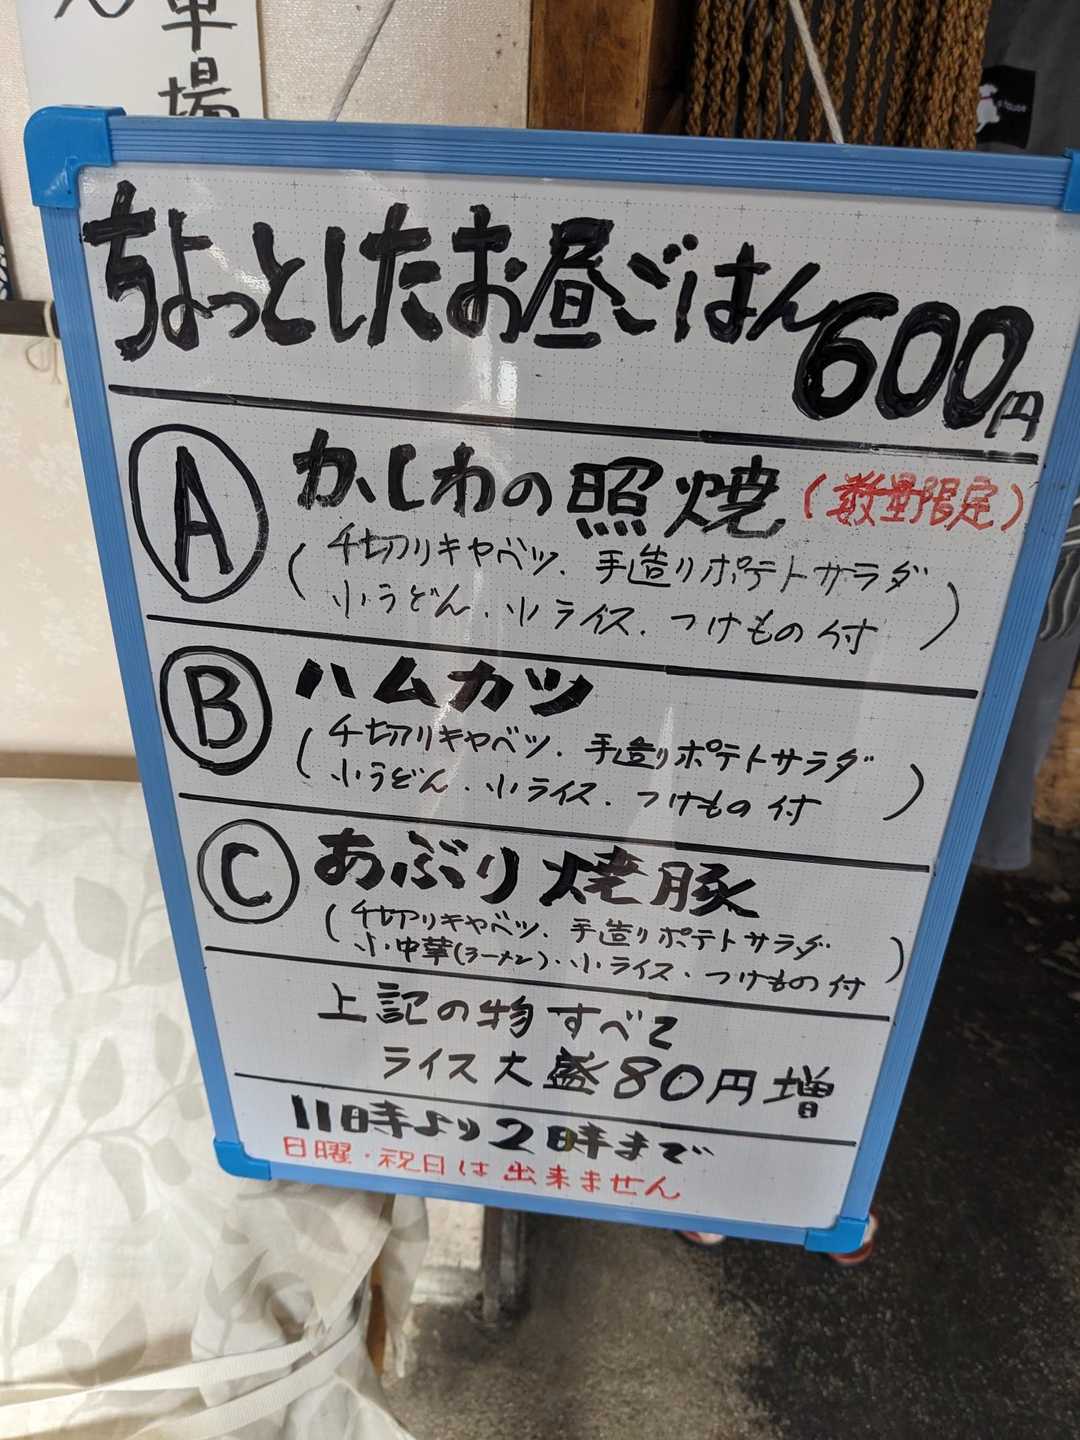 車場
ちょっとしたお昼ごはん600円
Ⓐ かしわの照焼(数量限定)
(千切りキャベツ、手造りポテトサラダ
小うどん、小ライス、つけもの付)
Ⓑ ハムカツ
(千切りキャベツ、手造りポテトサラダ
小うどん、小ライス、つけもの付)
Ⓒ あぶり焼豚
(千切りキャベツ、手造りポテトサラダ
小中華(ラーメン)、小ライス、つけもの付)
上記の物すべて
ライス大盛80円増
11時より2時まで
日曜・祝日は出来ません